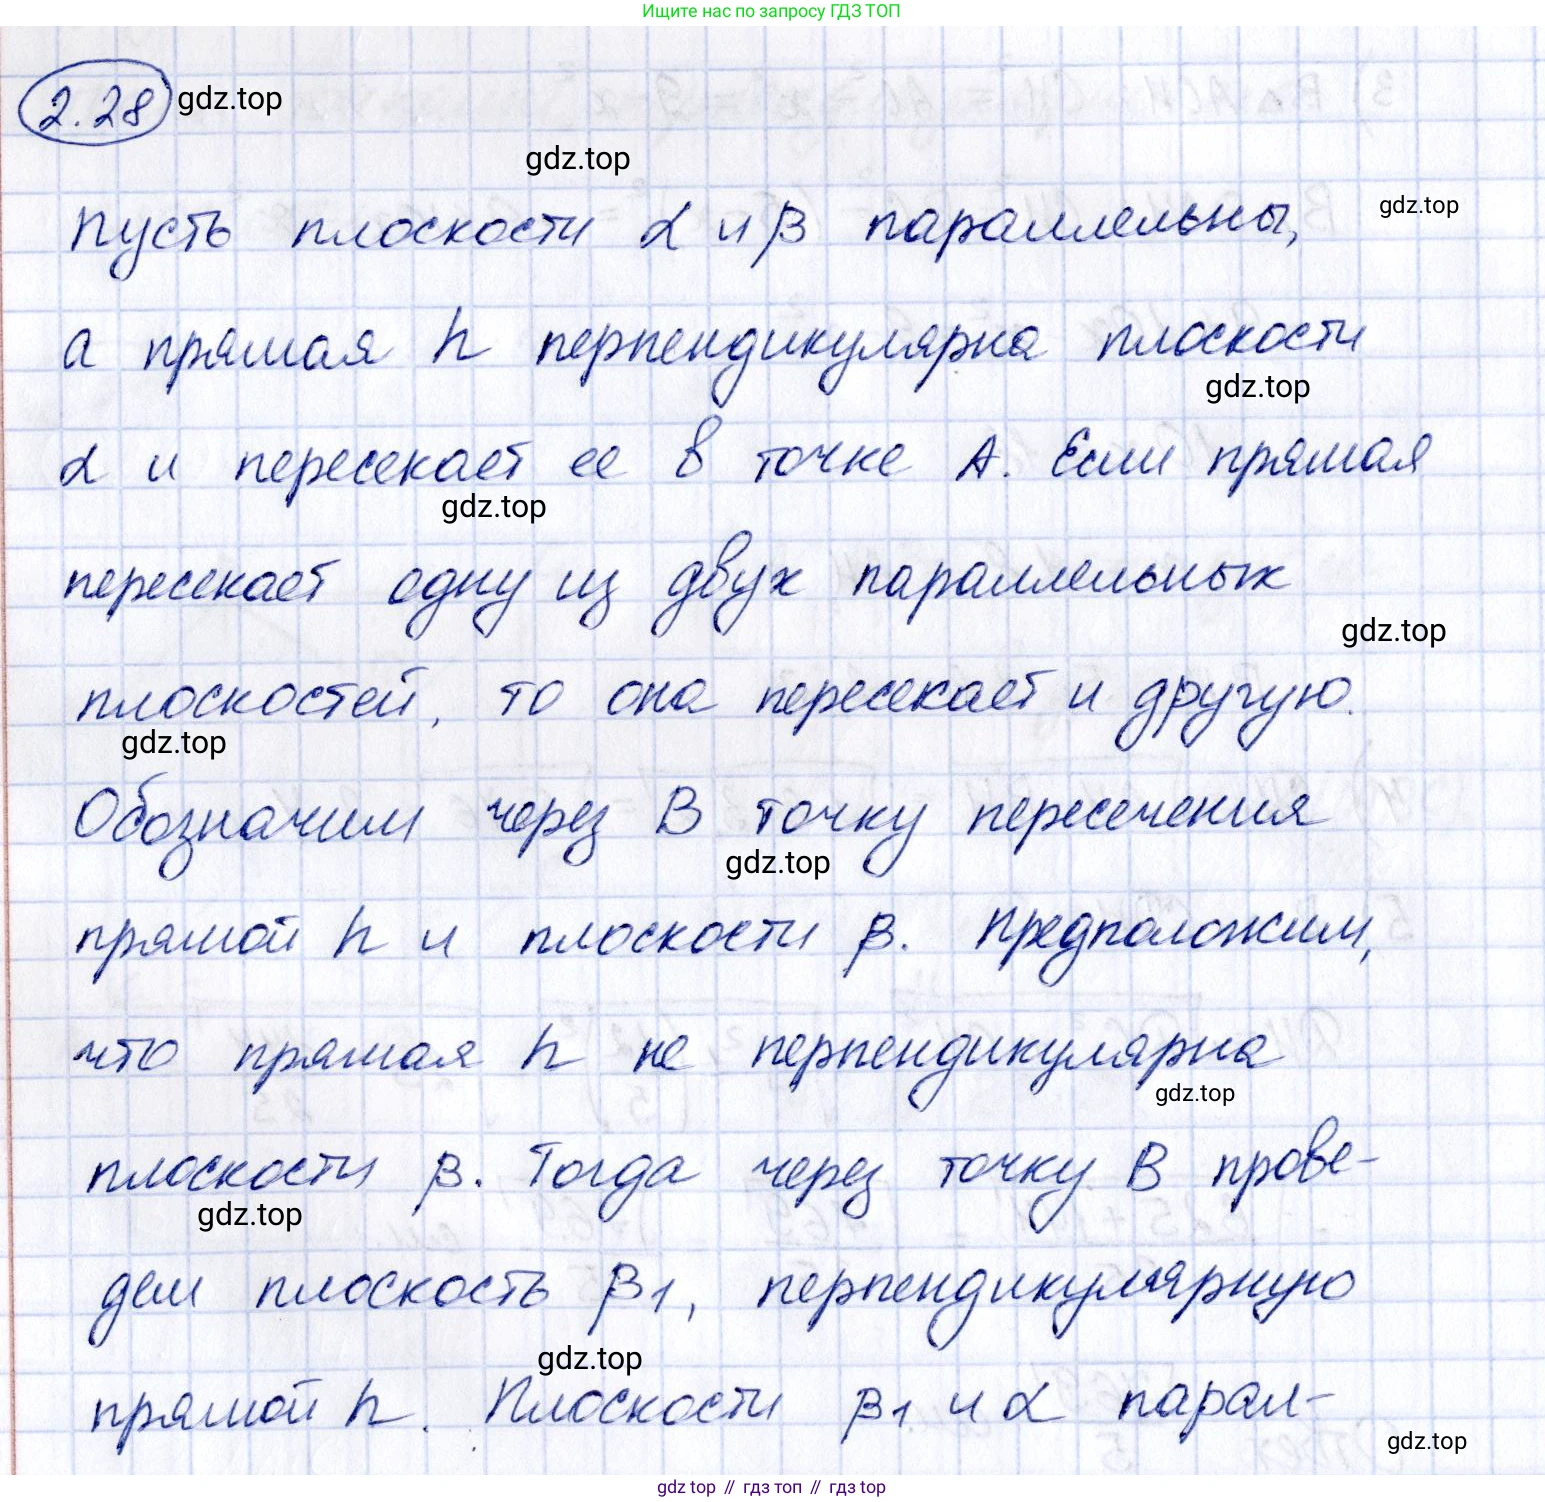 Ищите нас по запросу ГДЗ ТОП
2.28 gdz.top
gdz.top
Пусть плоскости α и β параллельны,
gdz.top
а прямая h перпендикулярна плоскости
gdz.top
α и пересекает ее в точке A. Если прямая
gdz.top
пересекает одну из двух параллельных
gdz.top
плоскостей, то она пересекает и другую.
gdz.top
Обозначим через B точку пересечения
gdz.top
прямой h и плоскости β. Предположим,
что прямая h не перпендикулярна
gdz.top
плоскости β. Тогда через точку B прове-
gdz.top
дем плоскость β1, перпендикулярную
gdz.top
прямой h. Плоскости β1 и α парал-
gdz.top
gdz top // гдз топ // gdz top